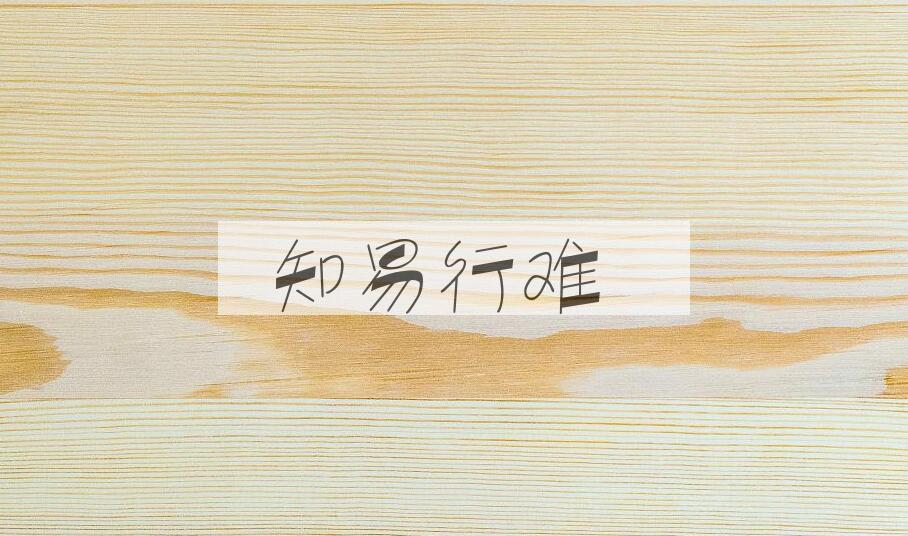 知易行难